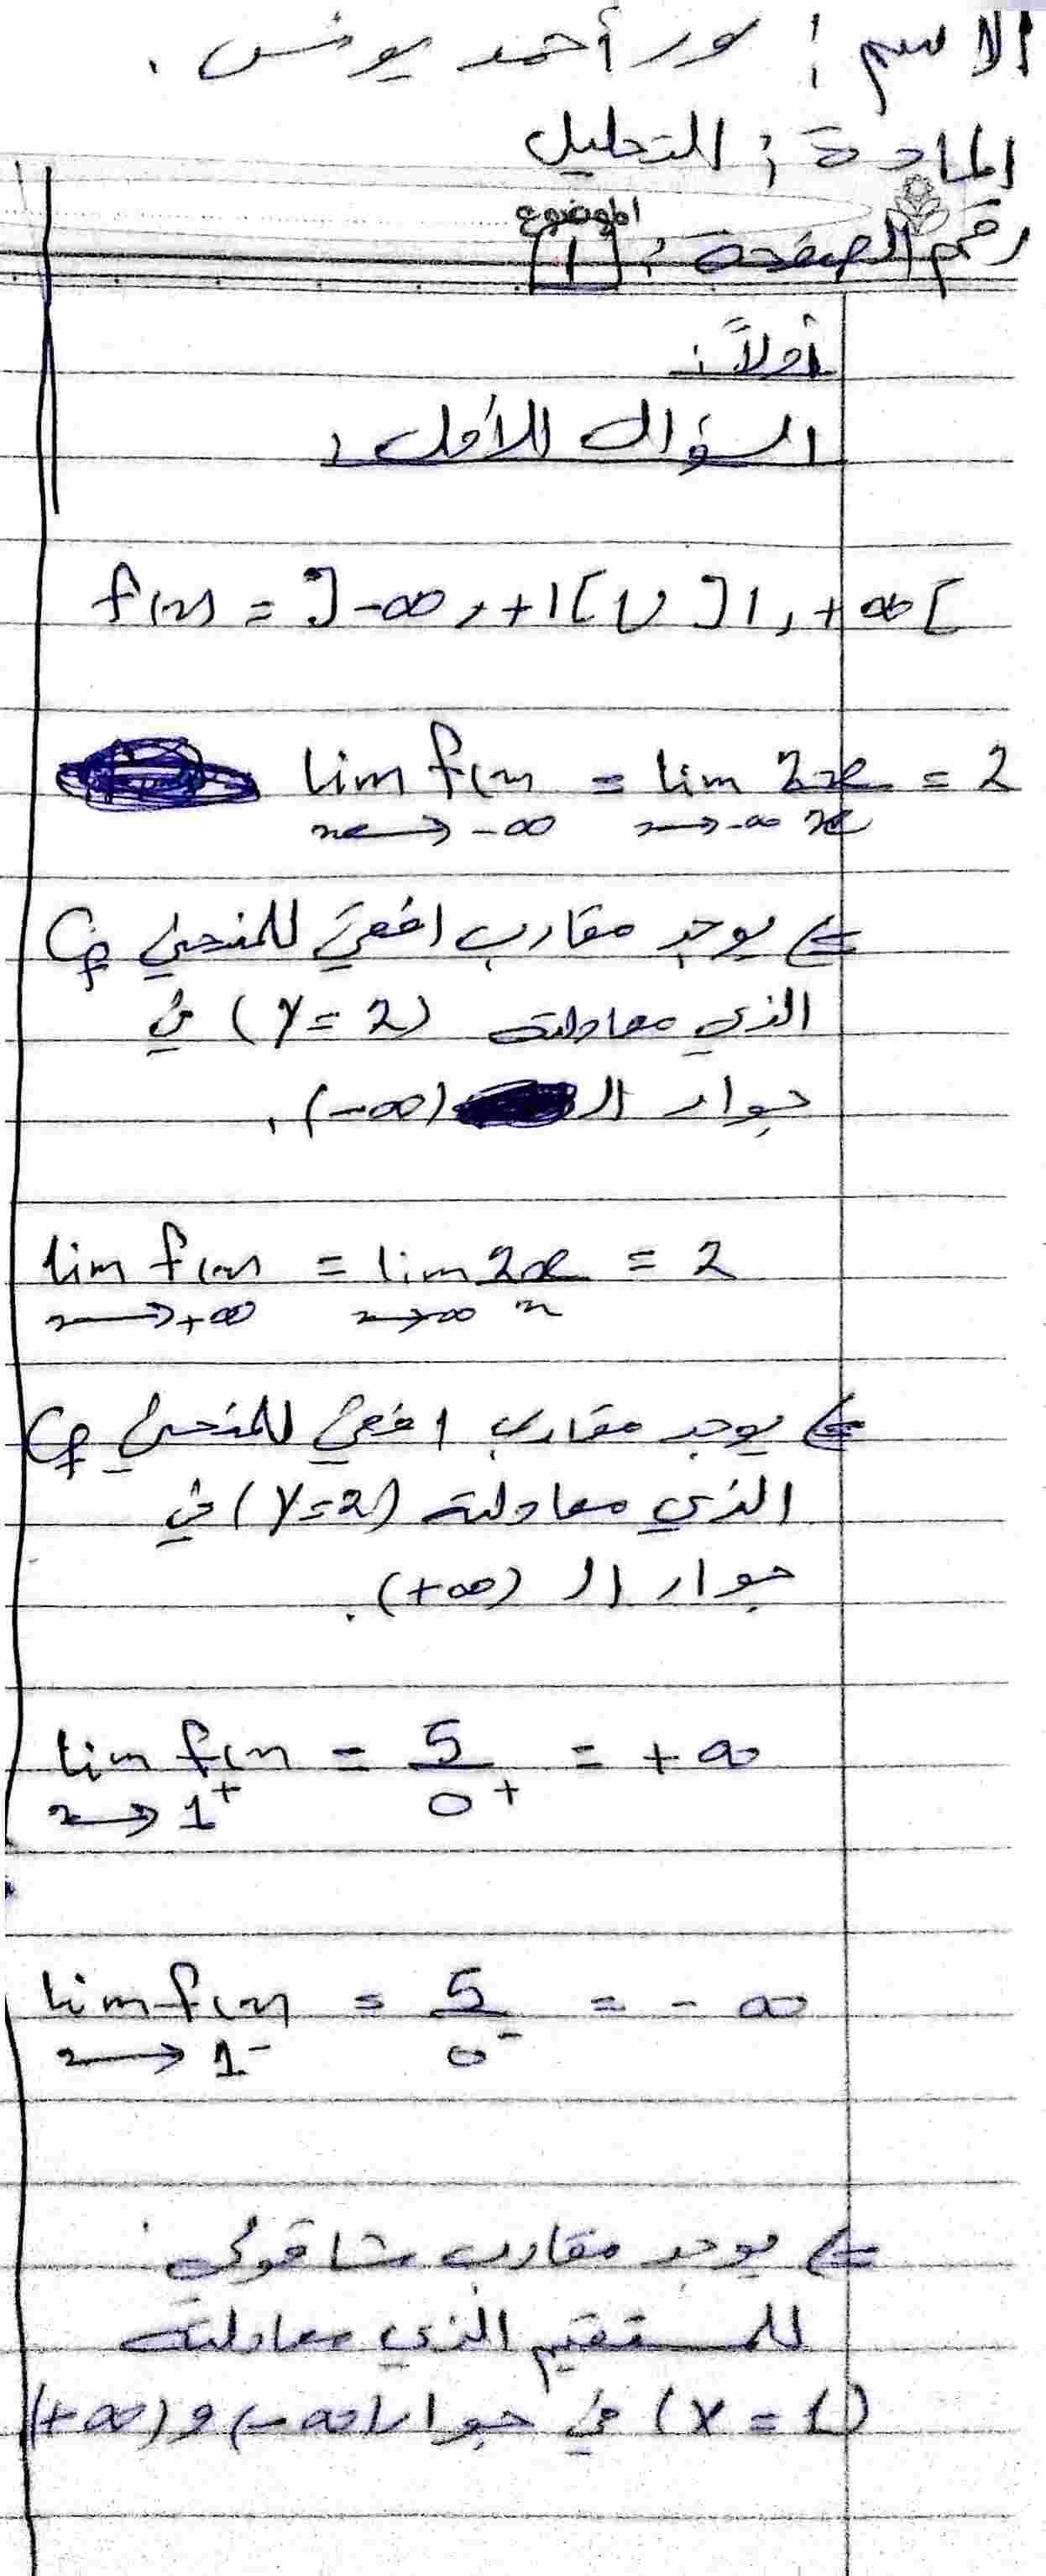 الاسم : نور أحمد يونس .
المادة : التحليل
الموضوع
رقم الصفحة : [1]
أولاً :
السؤال الأول :
f(x) = ]-∞, +1[ ∪ ]1, +∞[
lim f(x) = lim 2x/x = 2
x→-∞ x→-∞
⇐ يوجد مقارب افقي للمنحني Cf
الذي معادلته (y = 2) في
جوار ال (-∞) .
lim f(x) = lim 2x/x = 2
x→+∞ x→∞
⇐ يوجد مقارب افقي للمنحني Cf
الذي معادلته (y=2) في
جوار ال (+∞) .
lim f(x) = 5/0+ = +∞
x→1+
lim f(x) = 5/0- = -∞
x→1-
⇐ يوجد مقارب شاقولي
للمستقيم الذي معادلته
(x = 1) في جوار (-∞) و (+∞)